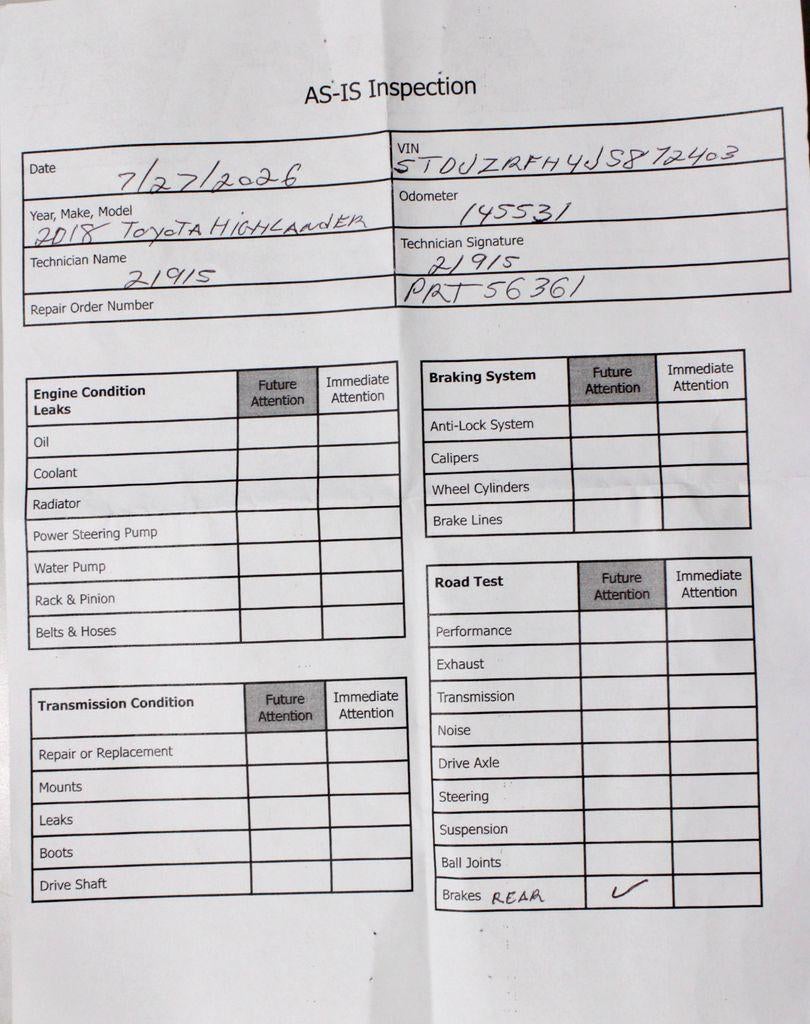 AS-IS Inspection
Date 7/27/2026
VIN 5TDJZRFH4JS872403
Year, Make, Model 2018 TOYOTA HIGHLANDER
Odometer 145531
Technician Name 21915
Technician Signature 21915
Repair Order Number
PRT56361
Engine Condition Leaks Future Attention Immediate Attention
Oil
Coolant
Radiator
Power Steering Pump
Water Pump
Rack & Pinion
Belts & Hoses
Braking System Future Attention Immediate Attention
Anti-Lock System
Calipers
Wheel Cylinders
Brake Lines
Transmission Condition Future Attention Immediate Attention
Repair or Replacement
Mounts
Leaks
Boots
Drive Shaft
Road Test Future Attention Immediate Attention
Performance
Exhaust
Transmission
Noise
Drive Axle
Steering
Suspension
Ball Joints
Brakes REAR ✓